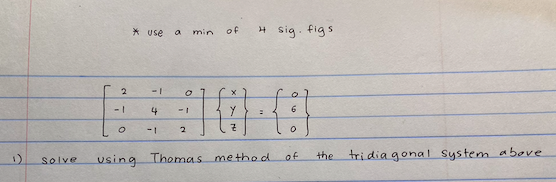 * use a min of 4 sig. figs
[ 2 -1 0 ] { x } { 0 }
[ -1 4 -1 ] { y } = { 6 }
[ 0 -1 2 ] { z } { 0 }
1) solve using Thomas method of the tridiagonal system above